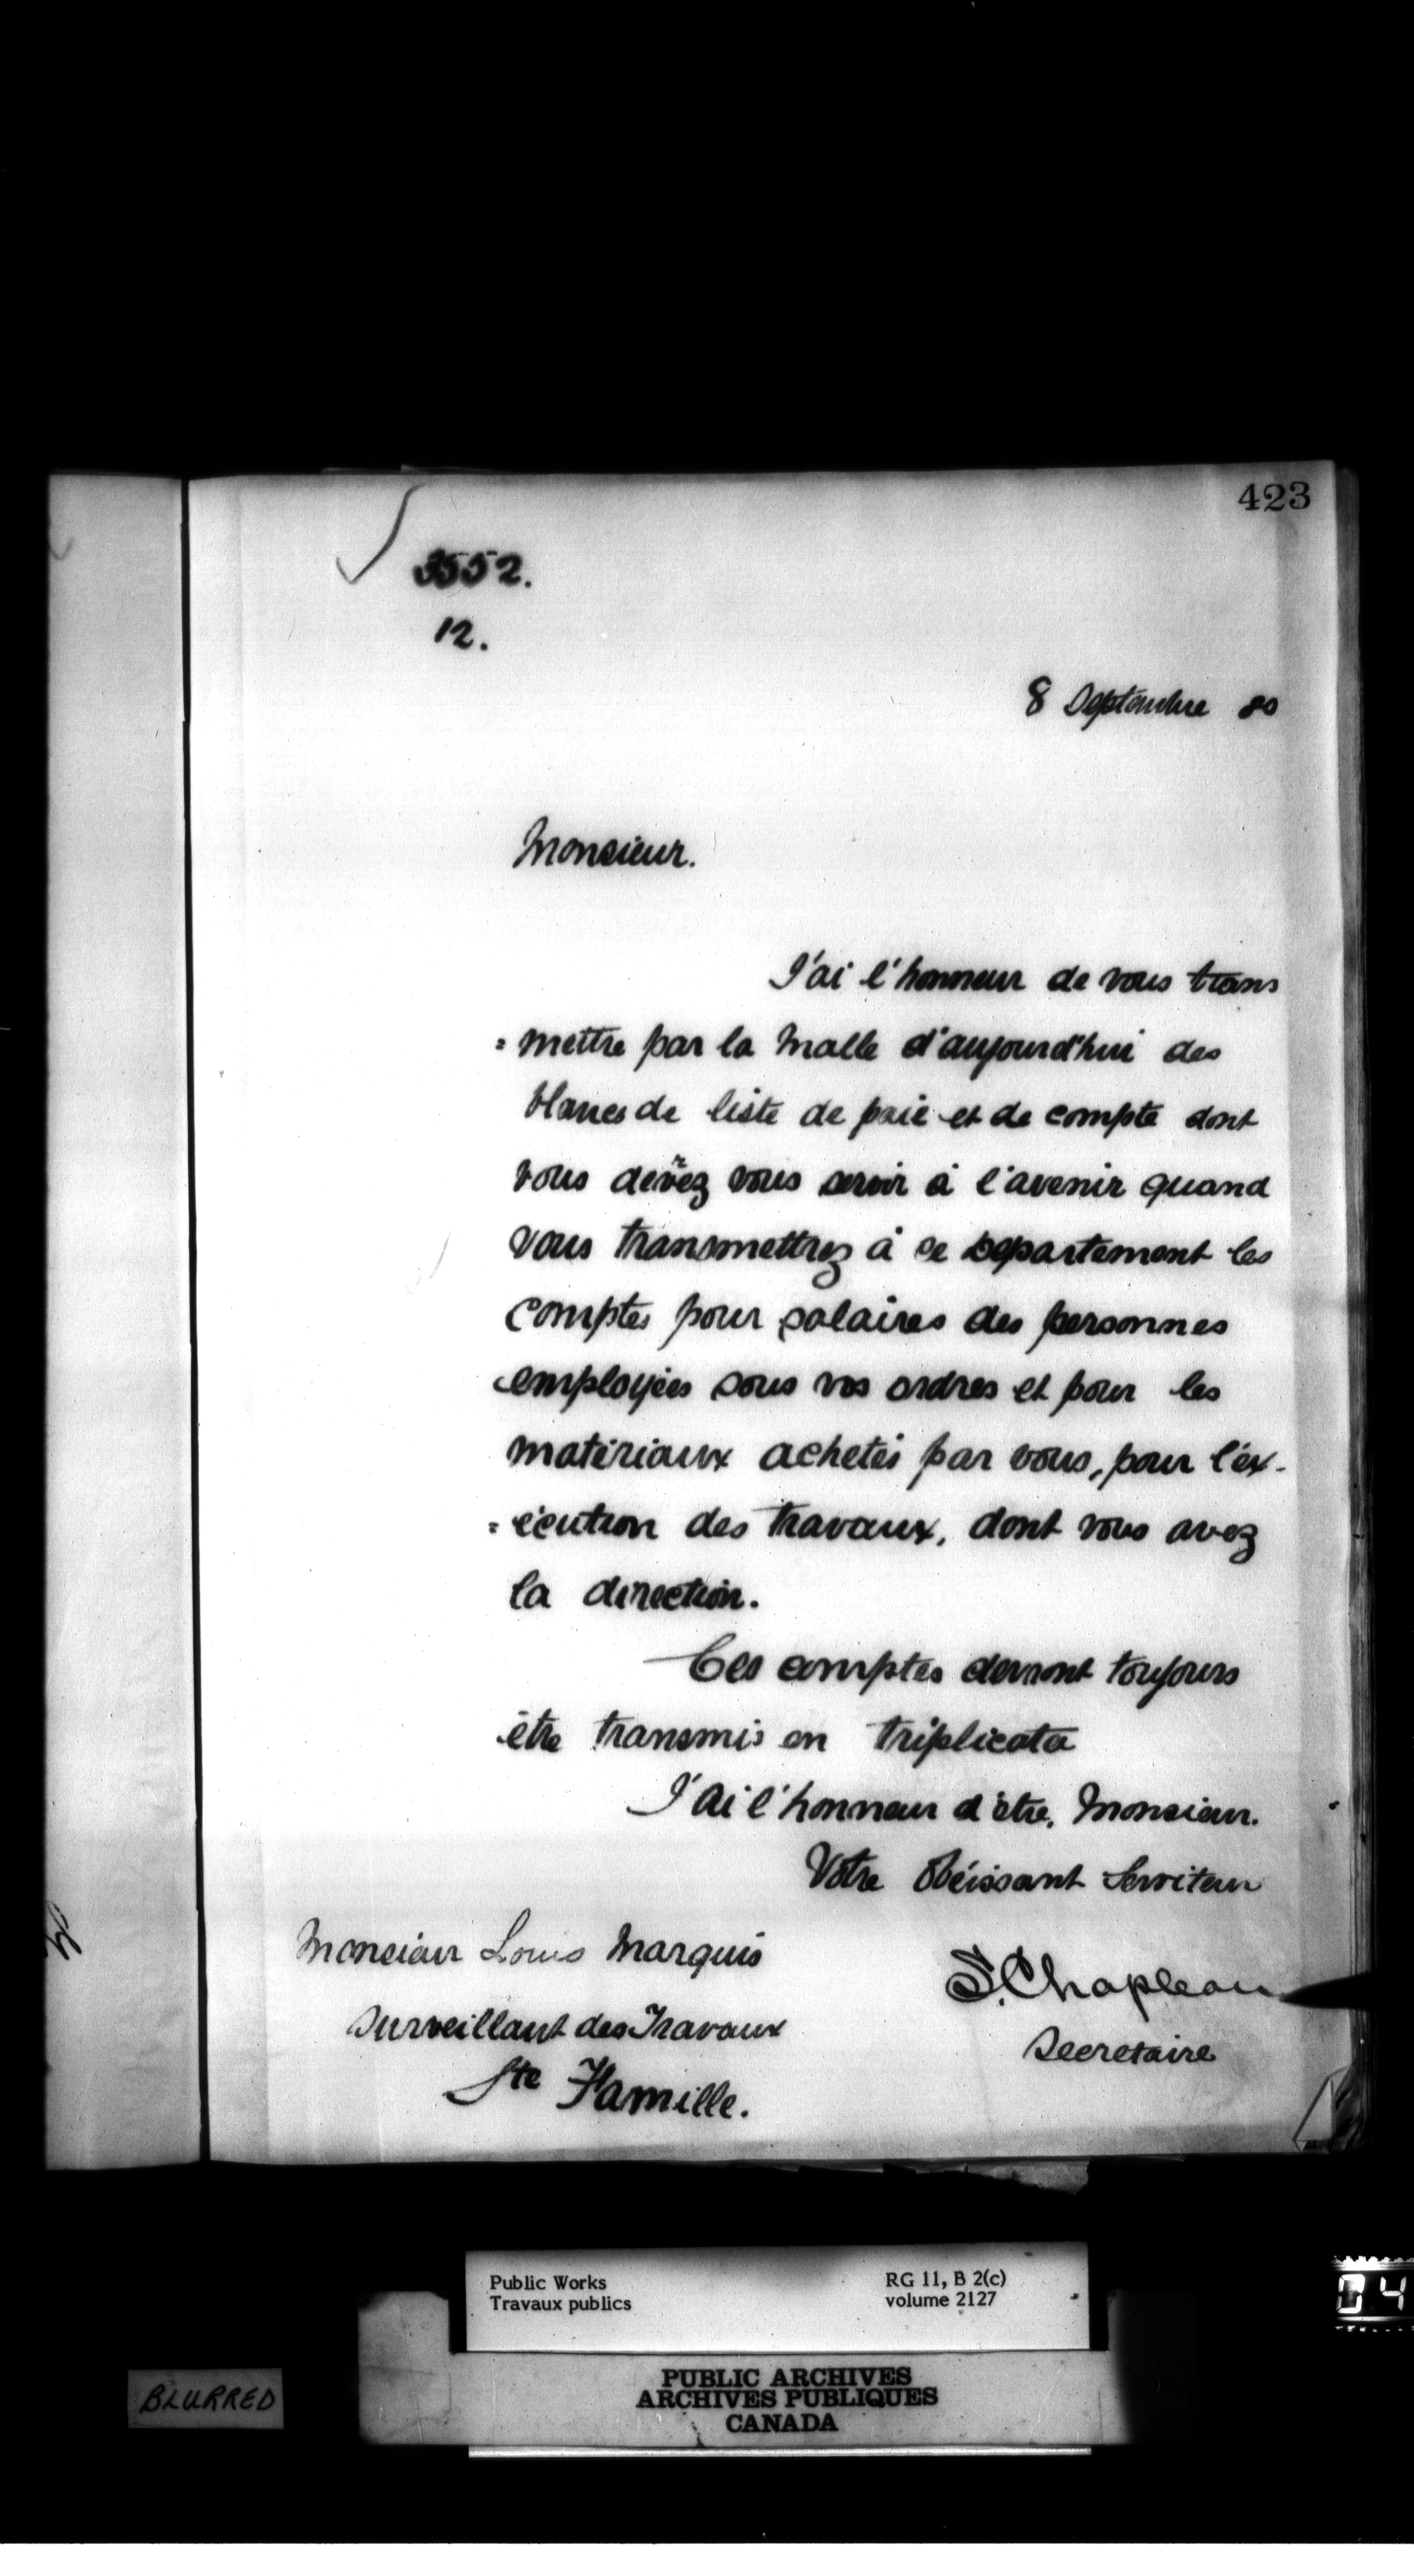 423
3552.
12.
8 Septembre 80
Monsieur.
J'ai l'honneur de vous trans
= mettre par la Malle d'aujourd'hui des
blancs de liste de paie et de compte dont
vous devrez vous servir à l'avenir quand
vous transmettrez à ce Département les
comptes pour salaires des personnes
employées sous vos ordres et pour les
matériaux achetés par vous, pour l'éx-
= écution des travaux, dont vous avez
la direction.
Ces comptes devront toujours
être transmis en triplicata
J'ai l'honneur d'être, Monsieur.
Votre Obéissant Serviteur
Monsieur Louis Marquis
Surveillant des Travaux
Ste Famille.
S. Chapleau
Secretaire
Public Works
Travaux publics
RG 11, B 2(c)
volume 2127
PUBLIC ARCHIVES
ARCHIVES PUBLIQUES
CANADA
BLURRED
04